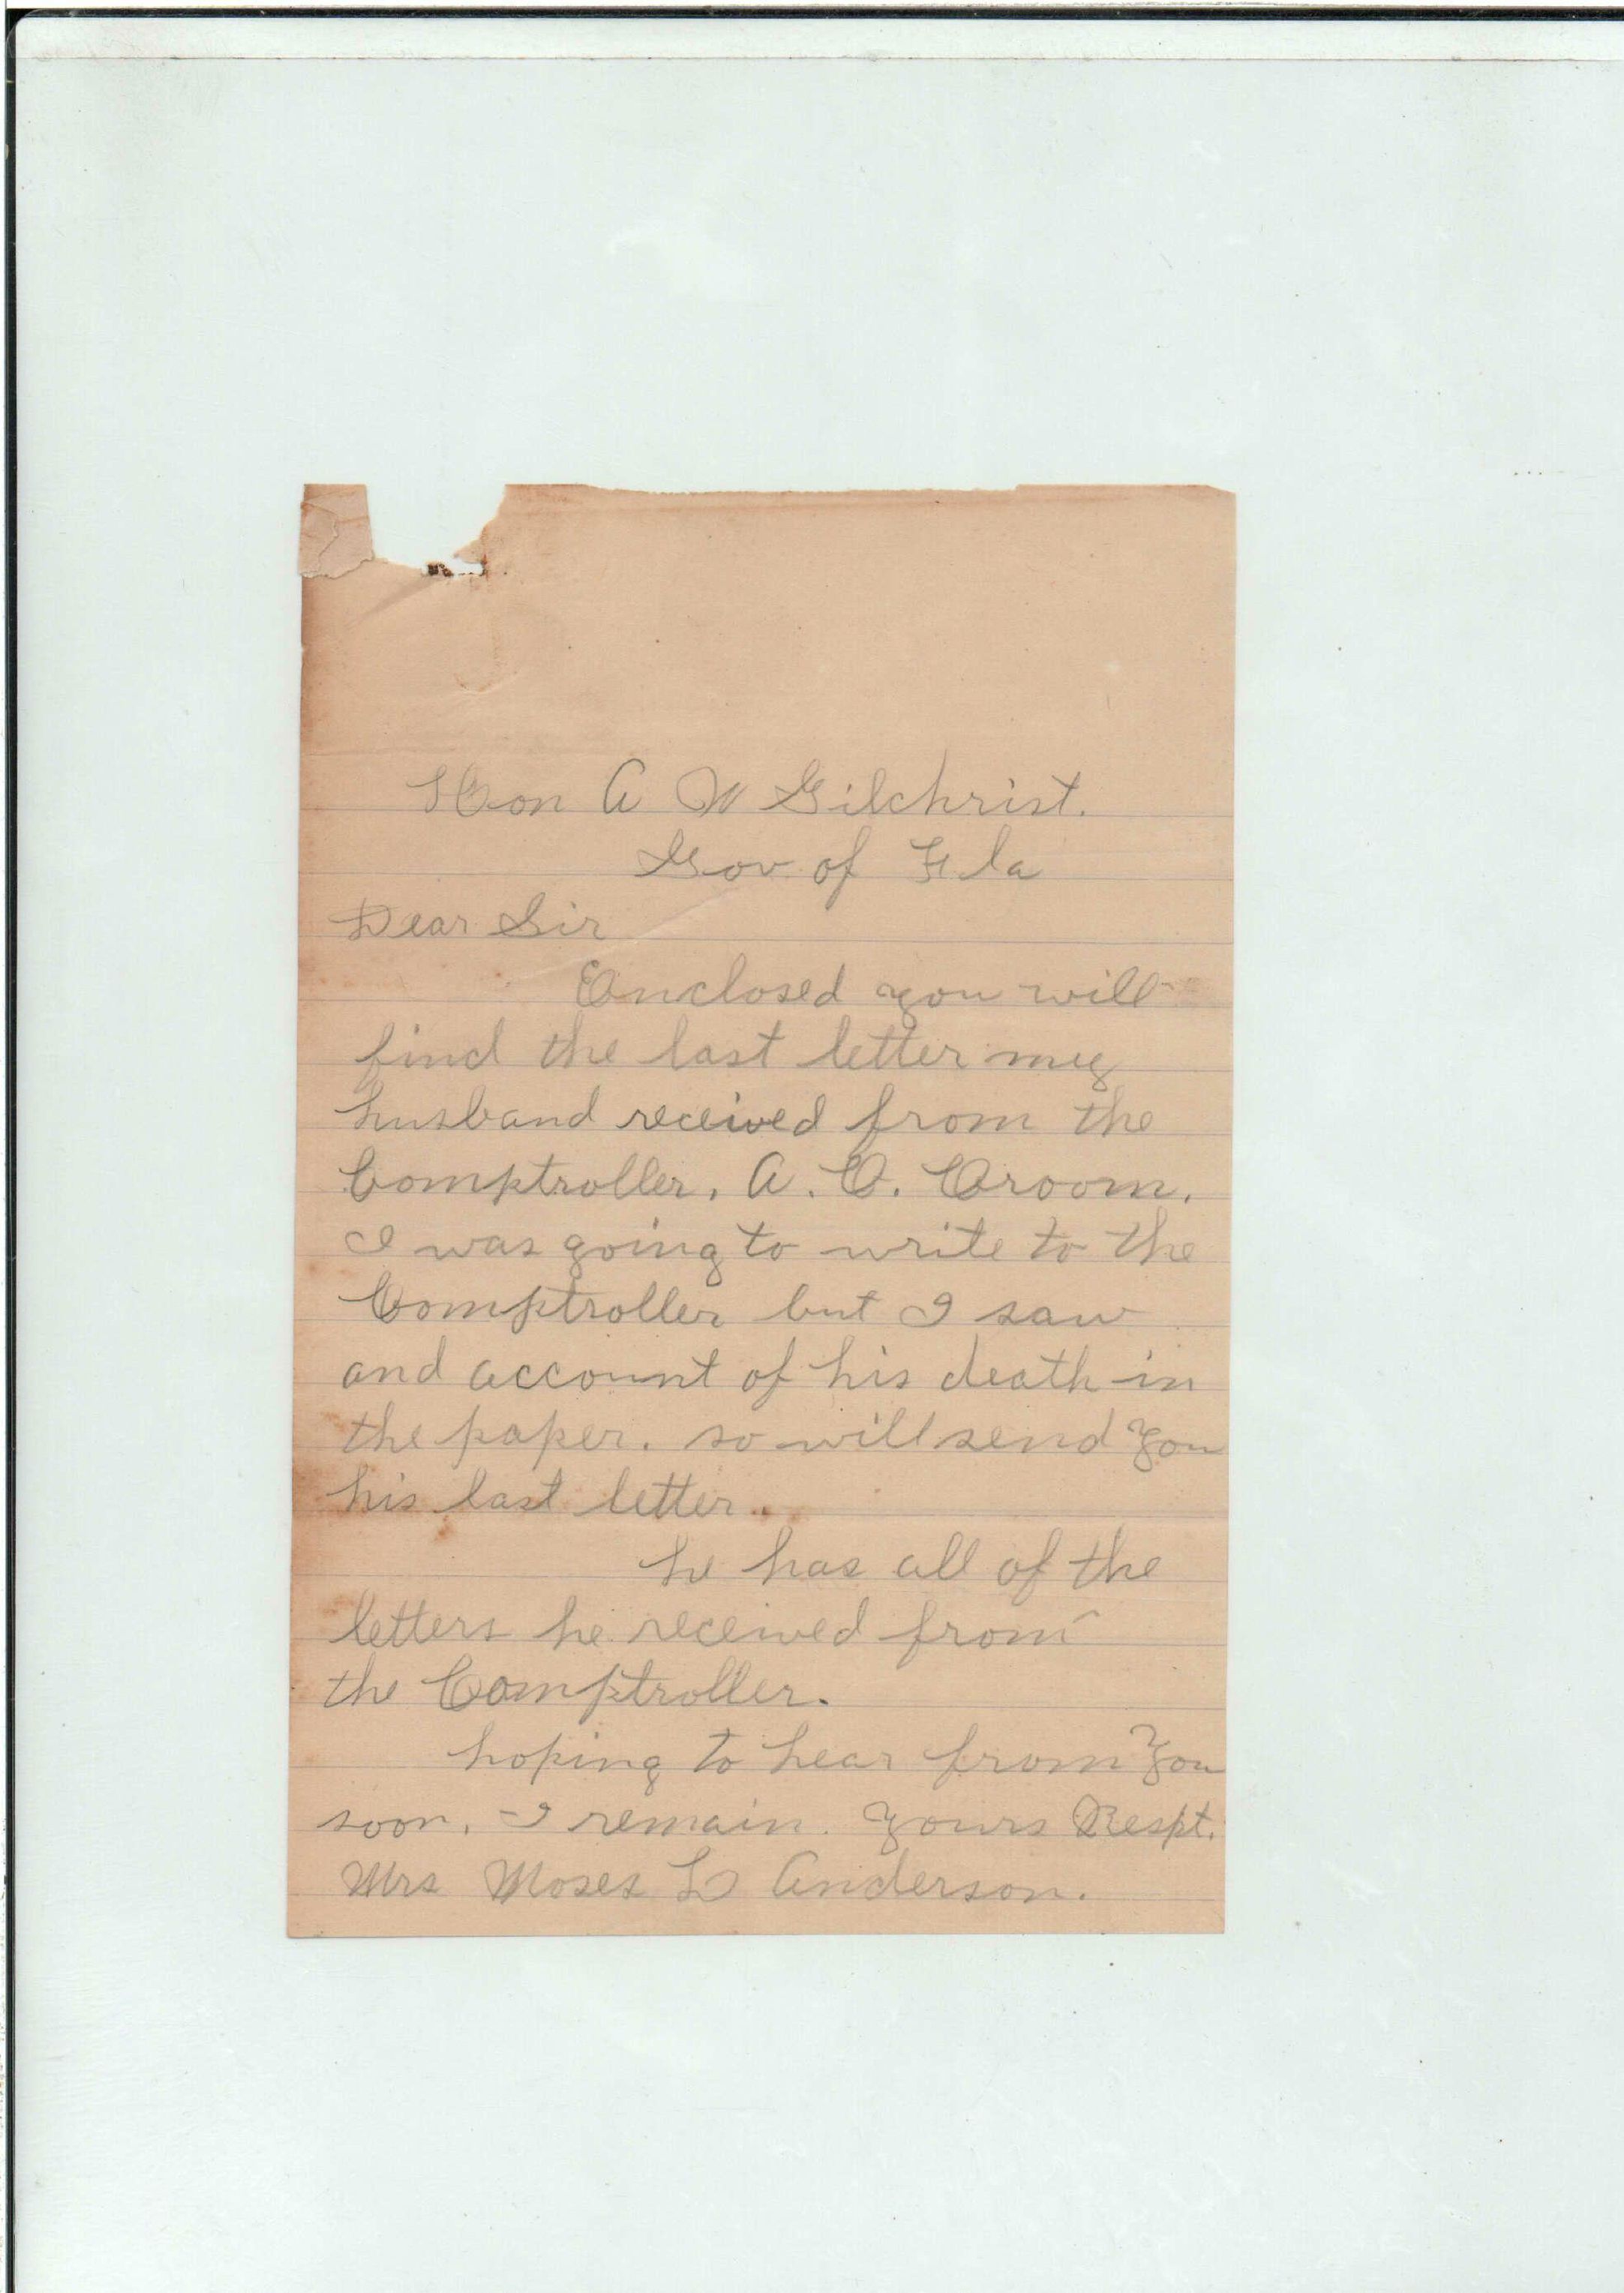 Hon A W Gilchrist.
Gov of Fla
Dear Sir
Enclosed you will
find the last letter my
husband received from the
Comptroller, A. C. Croom.
I was going to write to the
Comptroller but I saw
and account of his death in
the paper. so will send you
his last letter.
he has all of the
letters he received from
the Comptroller.
hoping to hear from you
soon, I remain. Yours Respt.
Mrs Moses L Anderson.